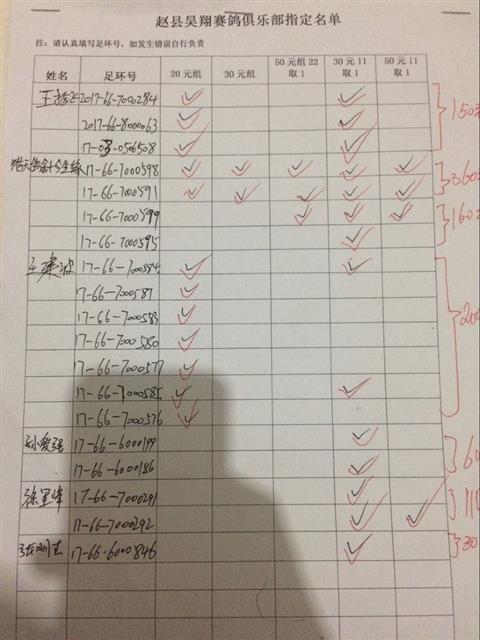 赵县昊翔赛鸽俱乐部指定名单
注：请认真填写足环号，如发生错误自行负责
姓名 足环号 20元组 30元组 50元组22取1 30元11取1 50元11取1
2017-66-7000284
2017-66-8000063
17-03-0506508
17-66-7000598
17-66-7000591
17-66-7000599
17-66-7000595
王建波 17-66-7000584
17-66-7000587
17-66-7000583
17-66-7000580
17-66-7000577
17-66-7000585
17-66-7000576
孙爱强 17-66-6000199
17-66-6000186
徐军峰 17-66-7000291
17-66-7000292
17-66-6000846